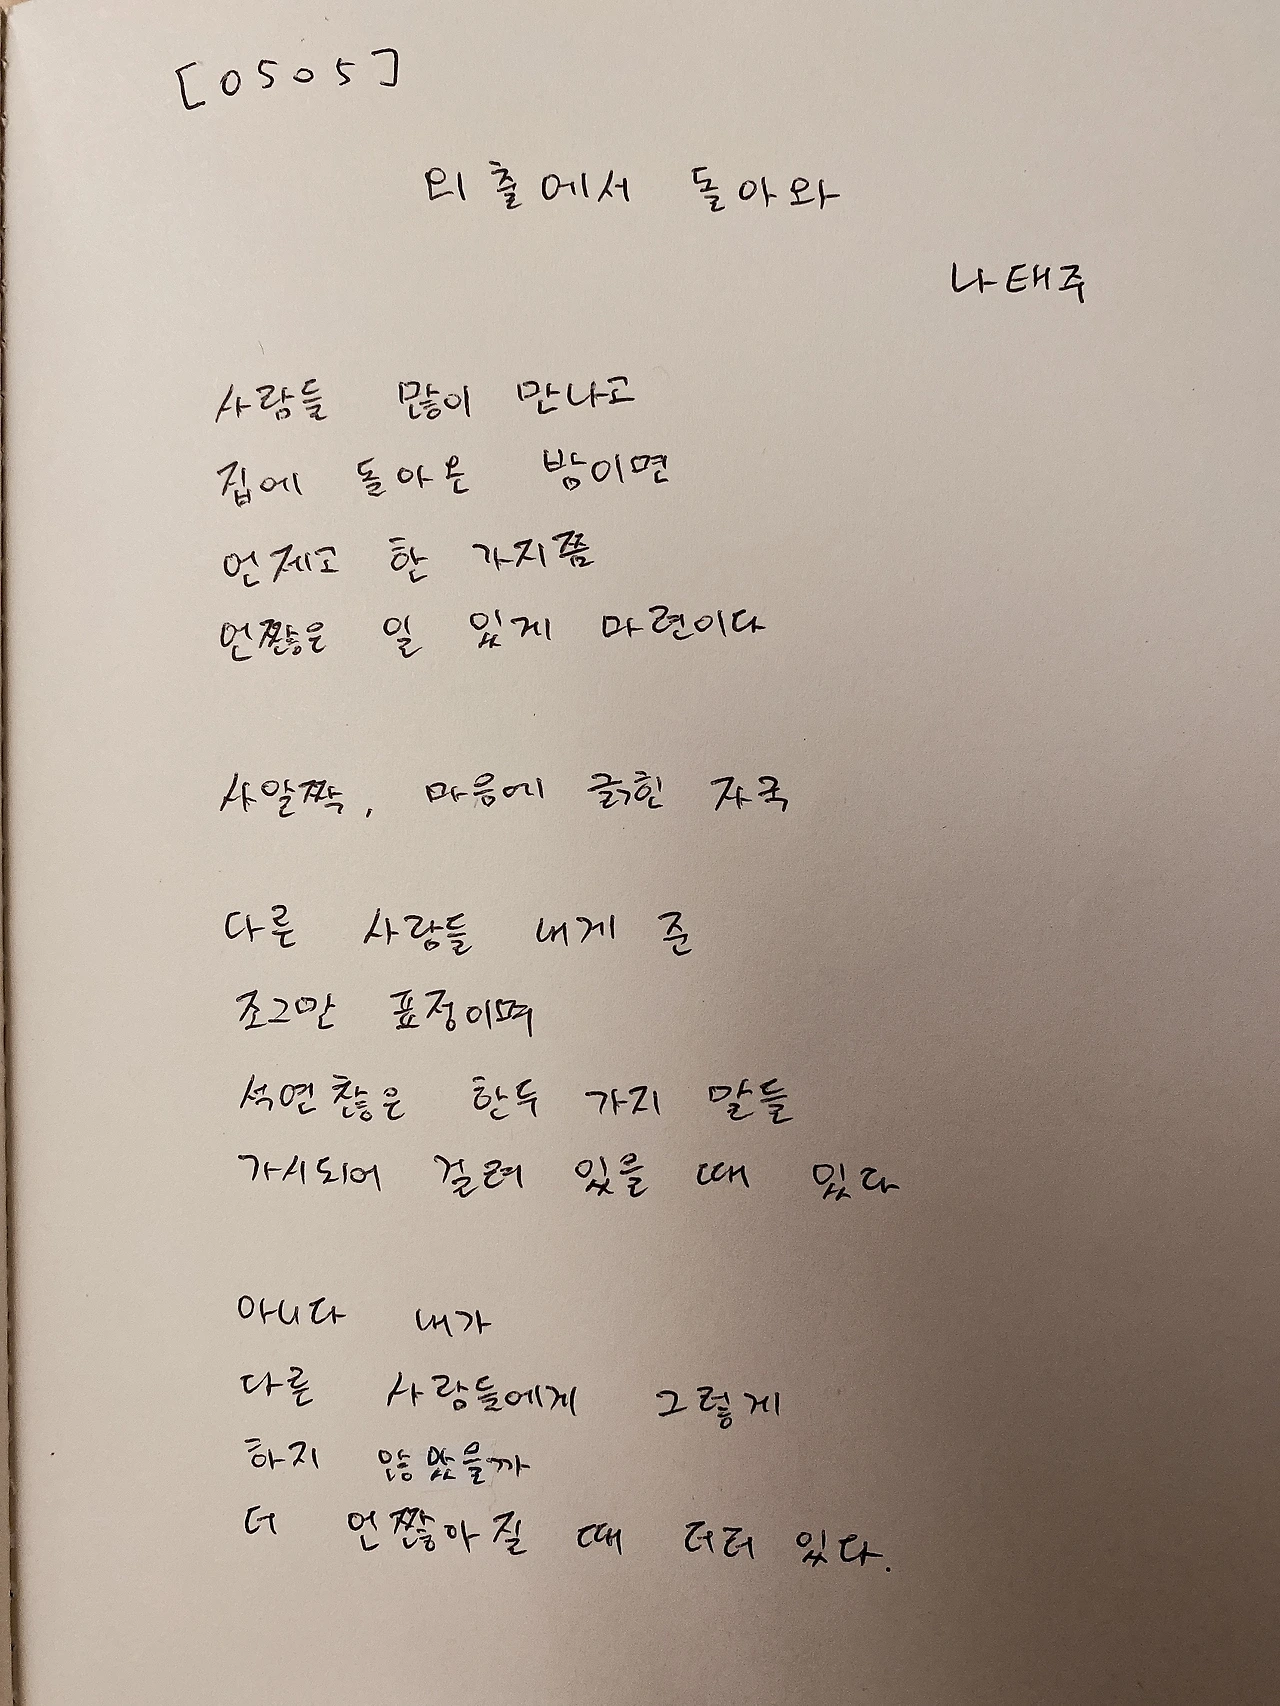 [0505]
외출에서 돌아와
나태주
사람들 많이 만나고
집에 돌아온 밤이면
언제고 한 가지쯤
언짢은 일 있게 마련이다
사알짝, 마음에 긁힌 자국
다른 사람들 내게 준
조그만 표정이며
석연찮은 한두 가지 말들
가시되어 걸려 있을 때 있다
아니다 내가
다른 사람들에게 그렇게
하지 않았을까
더 언짢아질 때 더러 있다.